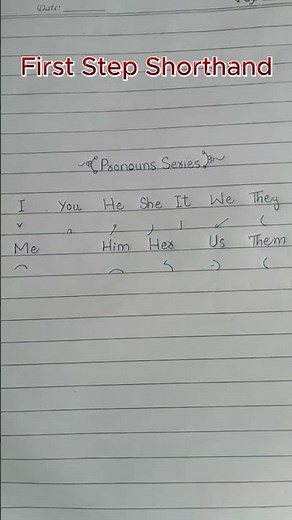 Date:
First Step Shorthand
Pronouns Series
I You He She It We They
Me Him Her Us Them